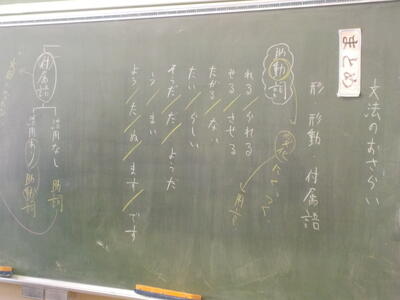 文法のおさらい
まとめ
形、形動、付属語
助動詞
れる/られる
せる/させる
たがる/ない
たい/らしい
そうだ/だ/ようだ
う/まい
よう/た/ぬ/ます/です
付属語
活用なし 助詞
活用あり 助動詞